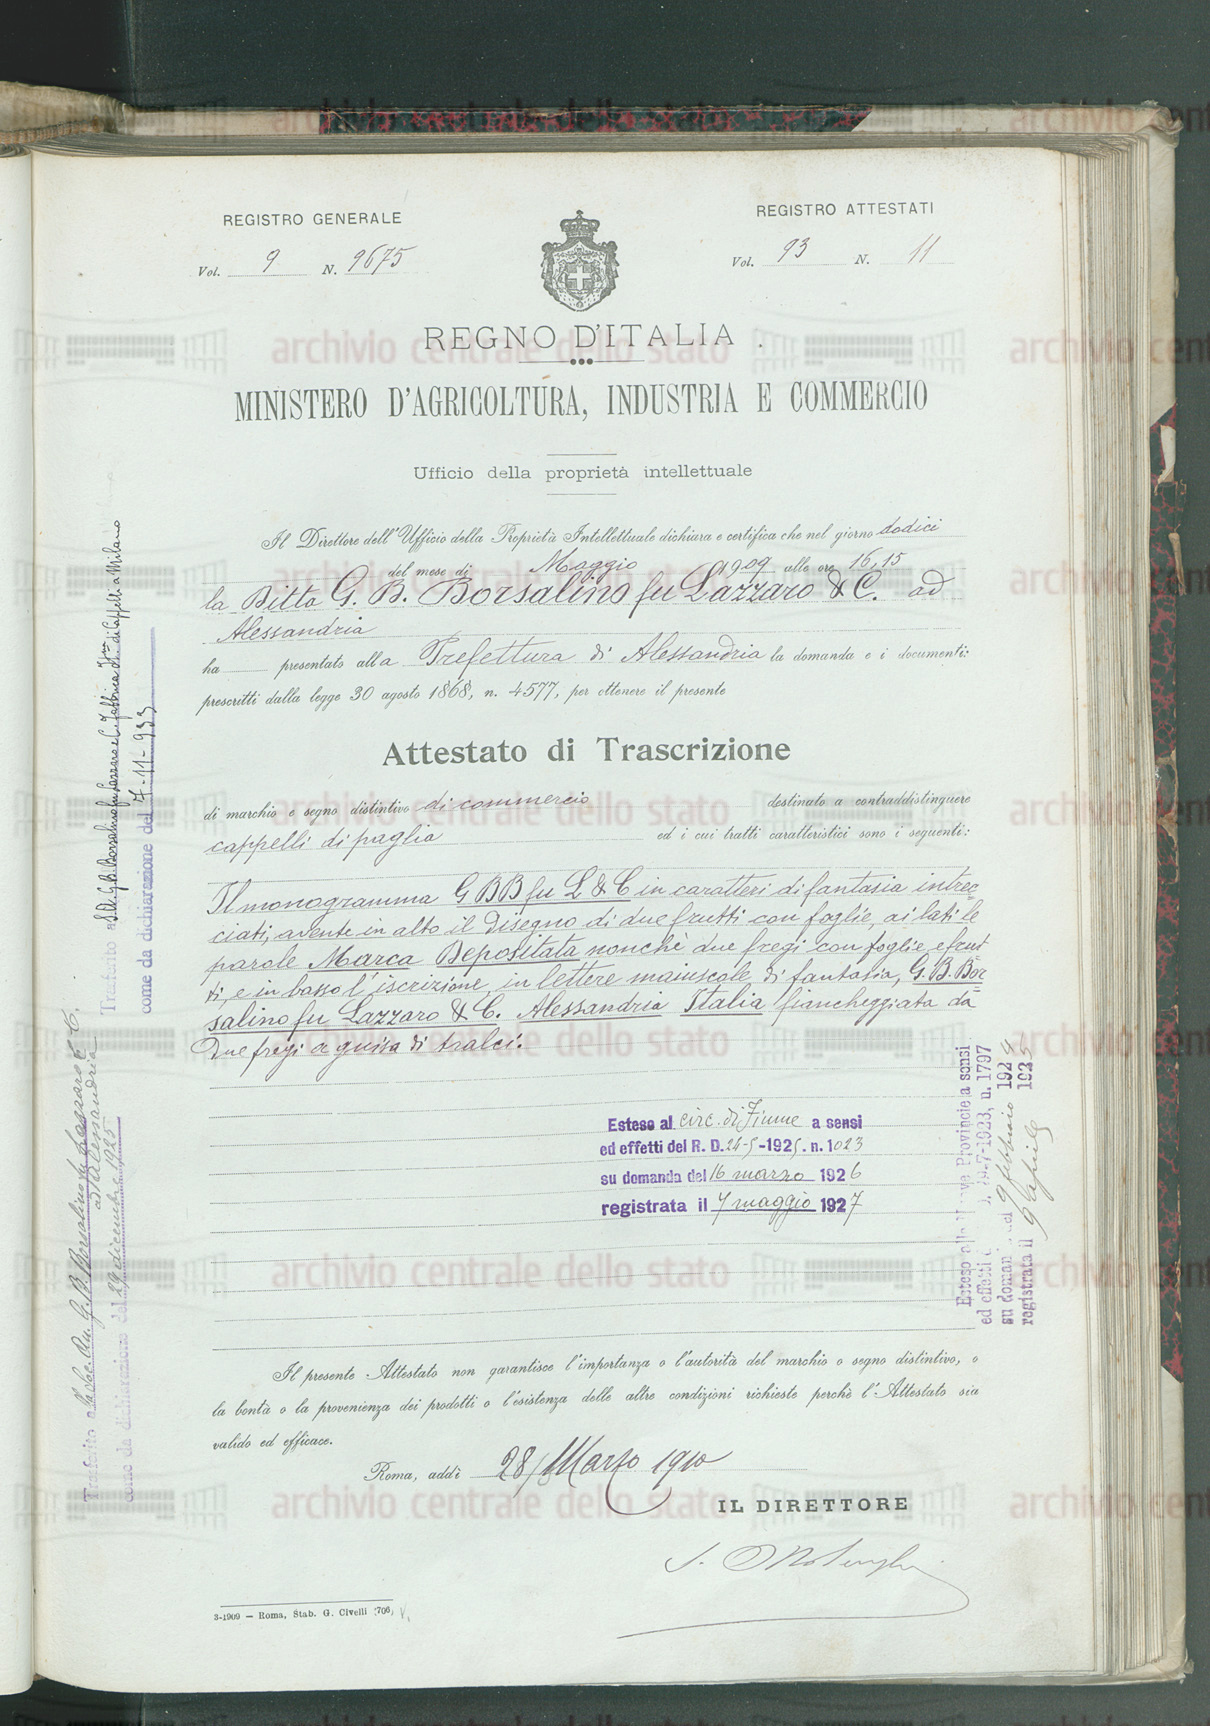 REGISTRO GENERALE
Vol. 9 N. 9675
REGISTRO ATTESTATI
Vol. 93 N. 11
REGNO D'ITALIA
MINISTERO D'AGRICOLTURA, INDUSTRIA E COMMERCIO
Ufficio della proprietà intellettuale
Il Direttore dell'Ufficio della Proprietà Intellettuale dichiara e certifica che nel giorno dodici
del mese di Maggio 1909 alle ore 16,15
la Ditta G. B. Borsalino fu Lazzaro & C. ad
Alessandria
ha presentato alla Prefettura di Alessandria la domanda e i documenti:
prescritti dalla legge 30 agosto 1868, n. 4577, per ottenere il presente
Attestato di Trascrizione
di marchio o segno distintivo di commercio destinato a contraddistinguere
cappelli di paglia ed i cui tratti caratteristici sono i seguenti:
Il monogramma G B B fu L & C in caratteri di fantasia intrec=
ciati, avente in alto il disegno di due frutti con foglie, ai lati le
parole Marca Depositata nonchè due fregi con foglie e frut
ti, e in basso l'iscrizione, in lettere maiuscole di fantasia, G. B. Bor
salino fu Lazzaro & C. Alessandria Italia fiancheggiata da
due fregi a guisa di tralci.
Esteso al circ. di Fiume a sensi
ed effetti del R. D. 24-5-1925. n. 1023
su domanda del 16 marzo 1926
registrata il 7 maggio 1927
Esteso alle nuove Provincie a sensi
ed effetti 29-7-1923, n. 1797
su domanda del 9 febbraio 1924
registrata il 9 aprile 1925
Trasferito a S.A. G.B. Borsalino fu Lazzaro e C. Fabbrica di Cappelli a Milano
come da dichiarazione del 7-11-933
Trasferito alla Soc. An. G. B. Borsalino fu Lazzaro e C.
ad Alessandria
come da dichiarazione del 29 dicembre 1925
Il presente Attestato non garantisce l'importanza o l'autorità del marchio o segno distintivo, o
la bontà o la provenienza dei prodotti o l'esistenza delle altre condizioni richieste perchè l'Attestato sia
valido ed efficace.
Roma, addì 28 Marzo 1910
IL DIRETTORE
3-1909 — Roma, Stab. G. Civelli (706)
archivio centrale dello stato